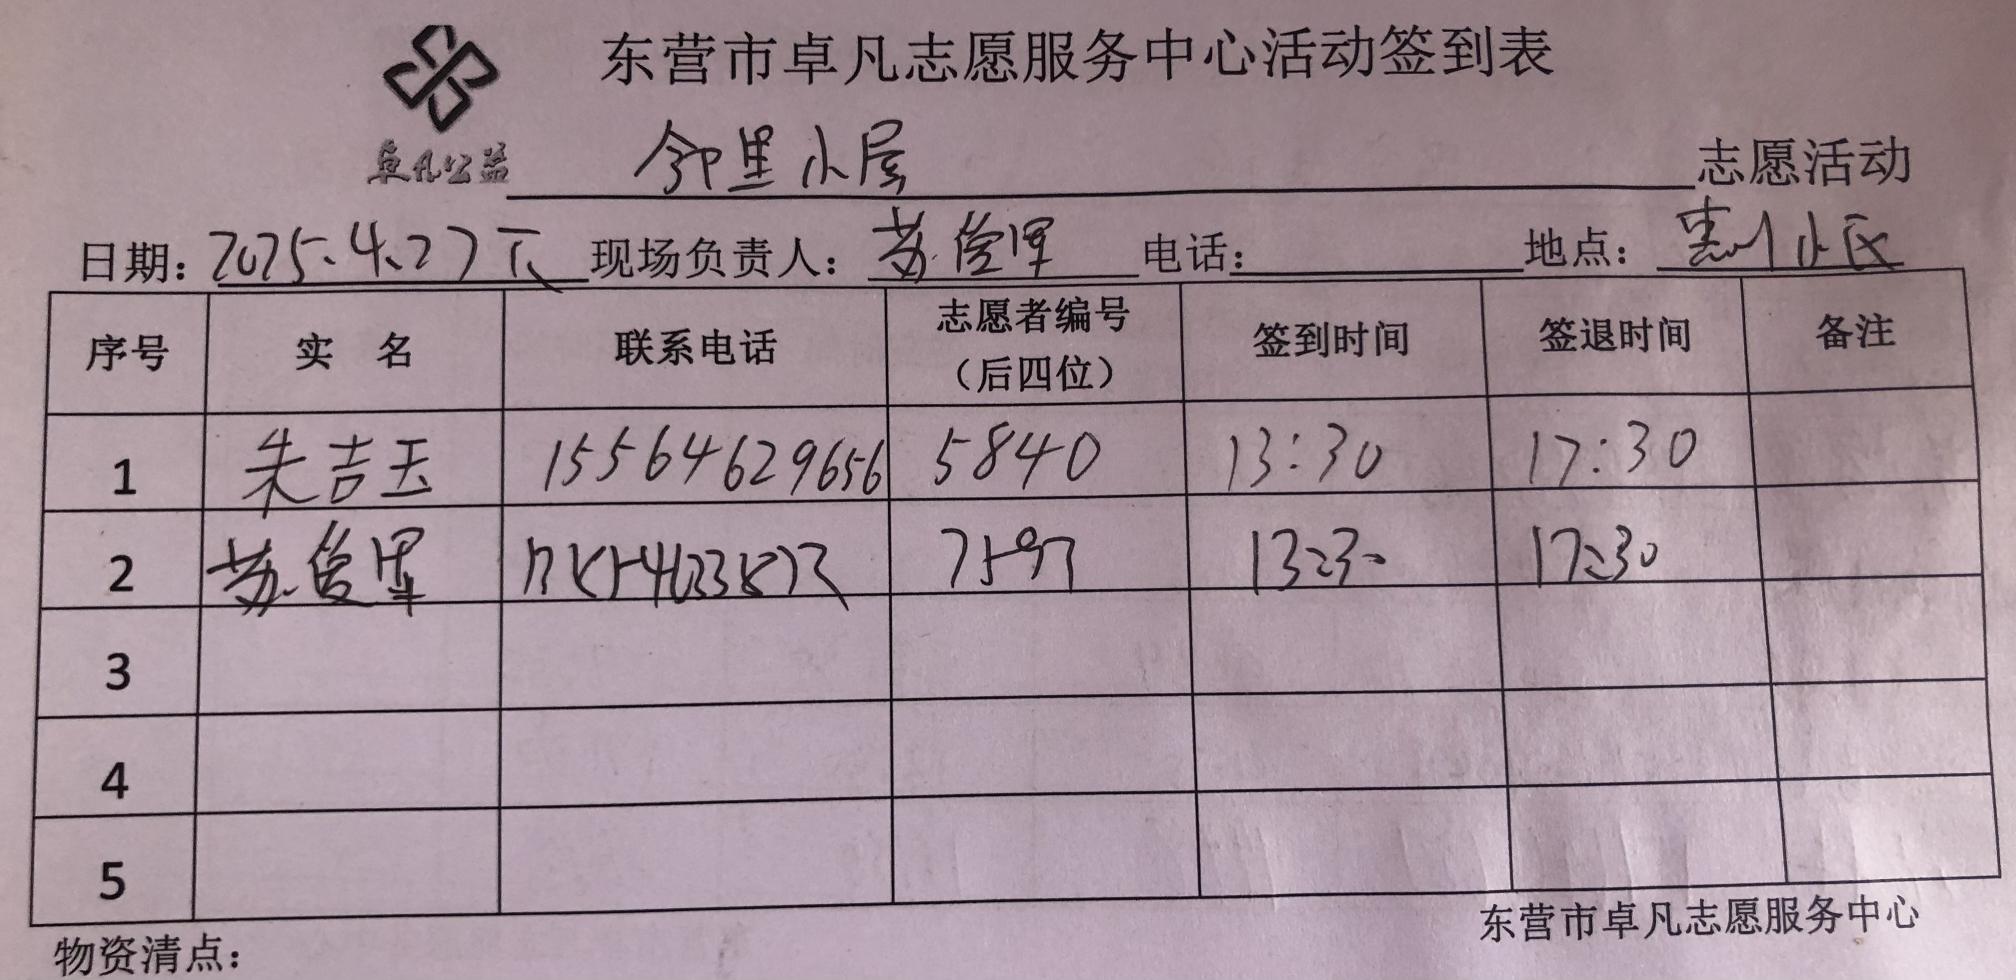 东营市卓凡志愿服务中心活动签到表
卓凡公益 邻里小屋 志愿活动
日期：2025.4.27下 现场负责人：苏俊军 电话： 地点：惠州小区
序号 实 名 联系电话 志愿者编号（后四位） 签到时间 签退时间 备注
1 朱吉玉 15564629656 5840 13:30 17:30
2 苏俊军 7597 13:30 17:30
3
4
5
东营市卓凡志愿服务中心
物资清点：